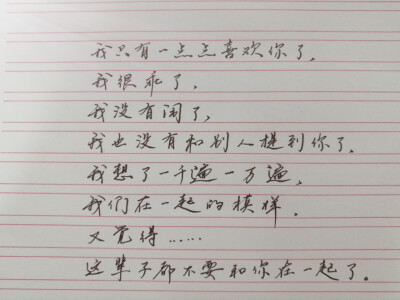 我只有一点点喜欢你了，
我很乖了，
我没有闹了，
我也没有和别人提到你了。
我想了一千遍一万遍，
我们在一起的模样，
又觉得……
这辈子都不要和你在一起了。